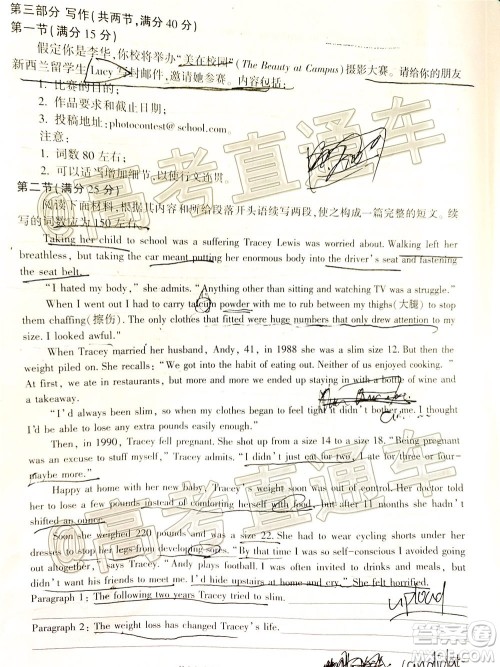 第三部分 写作(共两节,满分40分)
第一节(满分15分)
假定你是李华,你校将举办“美在校园”(The Beauty at Campus)摄影大赛。请给你的朋友
新西兰留学生Lucy写封邮件,邀请她参赛。内容包括:
1. 比赛的目的;
2. 作品要求和截止日期;
3. 投稿地址:photocontest@school.com.
注意:
1. 词数80左右;
2. 可以适当增加细节,以使行文连贯。
第二节(满分25分)
阅读下面材料,根据其内容和所给段落开头语续写两段,使之构成一篇完整的短文。续
写的词数应为150左右。
Taking her child to school was a suffering Tracey Lewis was worried about. Walking left her
breathless, but taking the car meant putting her enormous body into the driver's seat and fastening
the seat belt.
"I hated my body," she admits. "Anything other than sitting and watching TV was a struggle."
When I went out I had to carry talcum powder with me to rub between my thighs(大腿) to stop
them chaffing(擦伤). The only clothes that fitted were huge numbers that only drew attention to my
size. I looked awful."
When Tracey married her husband, Andy, 41, in 1988 she was a slim size 12. But then the
weight piled on. She recalls: "We got into the habit of eating out. Neither of us enjoyed cooking."
At first, we ate in restaurants, but more and more we ended up staying in with a bottle of wine and
a takeaway.
"I'd always been slim, so when my clothes began to feel tight it didn't bother me. I thought
I'd lose the extra pounds easily enough."
Then, in 1990, Tracey fell pregnant. She shot up from a size 14 to a size 18. "Being pregnant
was an excuse to stuff myself," Tracey admits. "I didn't just eat for two, I ate for three or four-
maybe more."
Happy at home with her new baby, Tracey's weight soon was out of control. Her doctor told
her to lose a few pounds instead of comforting herself with food, but after 11 months she hadn't
shifted an ounce.
Soon she weighed 220 pounds and was a size 22. She had to wear cycling shorts under her
dresses to stop her legs from developing sores. "By that time I was so self-conscious I avoided going
out altogether," says Tracey. "Andy plays football. I was often invited to drinks and meals, but
didn't want his friends to meet me. I'd hide upstairs at home and cry." She felt horrified.
Paragraph 1: The following two years Tracey tried to slim.
upload
Paragraph 2: The weight loss has changed Tracey's life.